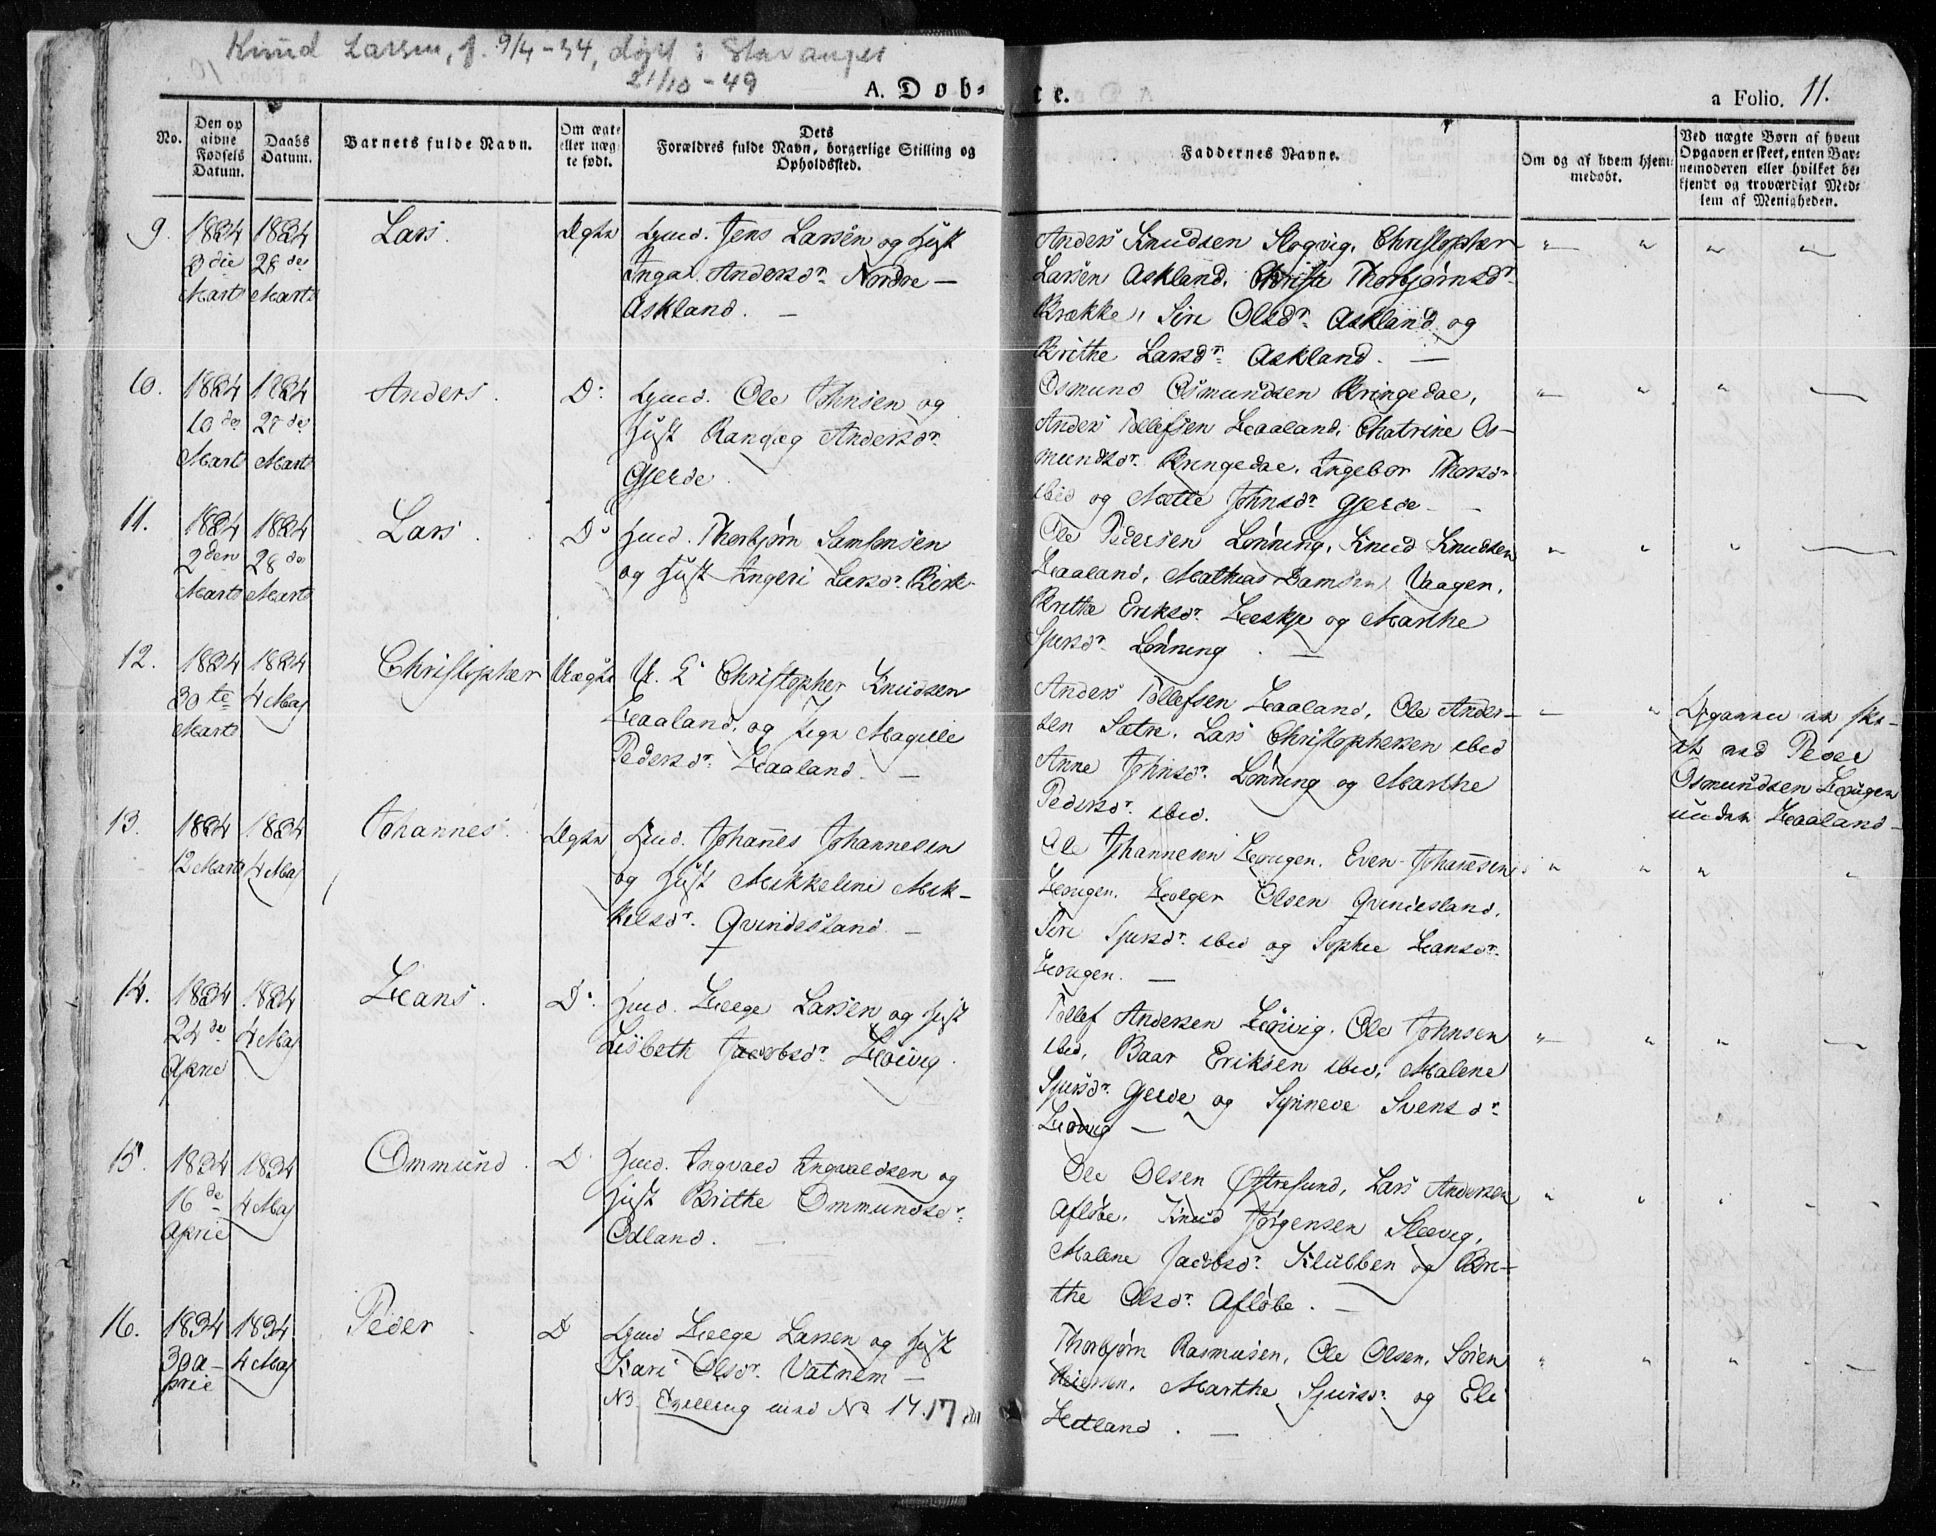 Knud Larsen, f. 9/4-34, døpt i Stavanger
21/10-49
A. Døbte.
a Folio. 11.
No.
Den opgivne Fødsels Datum.
Daabs Datum.
Barnets fulde Navn.
Om ægte eller uægte født.
Dets Forældres fulde Navn, borgerlige Stilling og Opholdssted.
Faddernes Navne.
Om og af hvem hjemmedøbt.
Ved uægte Børn af hvem Opgaven er skeet, enten Barnemoderen eller hvilket bekjendt og troværdigt Medlem af Menigheden.
9.
1834
3die
Marts
1834
28de
Marts
Lars.
Ægte
Gmd. Jens Larsen og Hust
Andersdr. Nordre
Askland.
Anders Knudsen Slogvig, Christopher
Larsen Askland, Thorbjørnsdr.
Brække, Siri Olsdr. Askland og
Brithe Larsdr. Askland.
10.
1834
10de
Marts
1834
28de
Marts
Anders.
Do
Gmd. Ole Johnsen og
Hust Andersdr.
Gjerde.
Osmund Osmundsen Kringedae,
Anders Tollefsen Haaland, Chatrine Os-
mundsdr. Kringedae, Ingebor
ibid og Mette Johnsdr. Gjerde
11.
1834
2den
Marts
1834
28de
Marts
Lars.
Do
Hmd. Thorbjørn Samsonsen
og Hust Ingeri Larsdr. Birk-
Ole Pedersen Lønning, Knud Knudsen
Haaland, Mathias Vaagen,
Brithe Eriksdr. Heskje og Marthe
Sjursdr. Lønning.
12.
1834
30te
Marts
1834
4 Maj
Christopher
Uægte
Christopher Knudsen
Haaland, og Pige Magille
Pedersdr. Haaland.
Anders Tollefsen Haaland, Ole Ander-
sen Sætre, Lars Christophersen ibid
Anne Johnsdr. Lønning og Marthe
Pedersdr. ibid.
Opgaven er ske-
et ved Peder
Osmundsen Hougen
under Haaland
13.
1834
12 Marts
1834
4 Maj
Johannes.
Ægte
Hmd. Johannes Johannesen
og Hust Mikkeline Mik-
kelsdr. Qvindesland.
Ole Johannesen Hougen, Even Johannesen
Hougen, Holger Olsen Qvindesland,
Siri Sjursdr. ibid og Sophie Hansdr.
Hougen.
14.
1834
24de
April
1834
4 Maj
Hans.
Do
Hmd. Helge Larsen og Hust
Lisbeth Jacobsdr. Høivig.
Tollef Andersen Høivig, Ole Johnsen
ibid, Baar Eriksen ibid, Malene
Sjursdr. Gjerde og Synneve Svensdr.
Høivig
15.
1834
16de
April
1834
4 Maj
Ommund.
Do
Hmd. Ingvald Ingvaldsen og
Hust Brithe Ommundsdr.
Odland.
Ole Olsen Østresund, Lars Andersen
Afløbe, Knud Jørgensen Slevig,
Malene Jacobsdr. Klubben og Bri-
the Olsdr. Afløbe.
16.
1834
30 A-
pril
1834
4 Maj
Peder
Do
Gmd Helge Larsen og Hust
Kari Olsdr. Vatnem
NB. Tvilling med No 17.
Thorbjørn Rasmusen, Ole Olsen, Søren
Marthe Sjursdr. og Eli
Hetland.